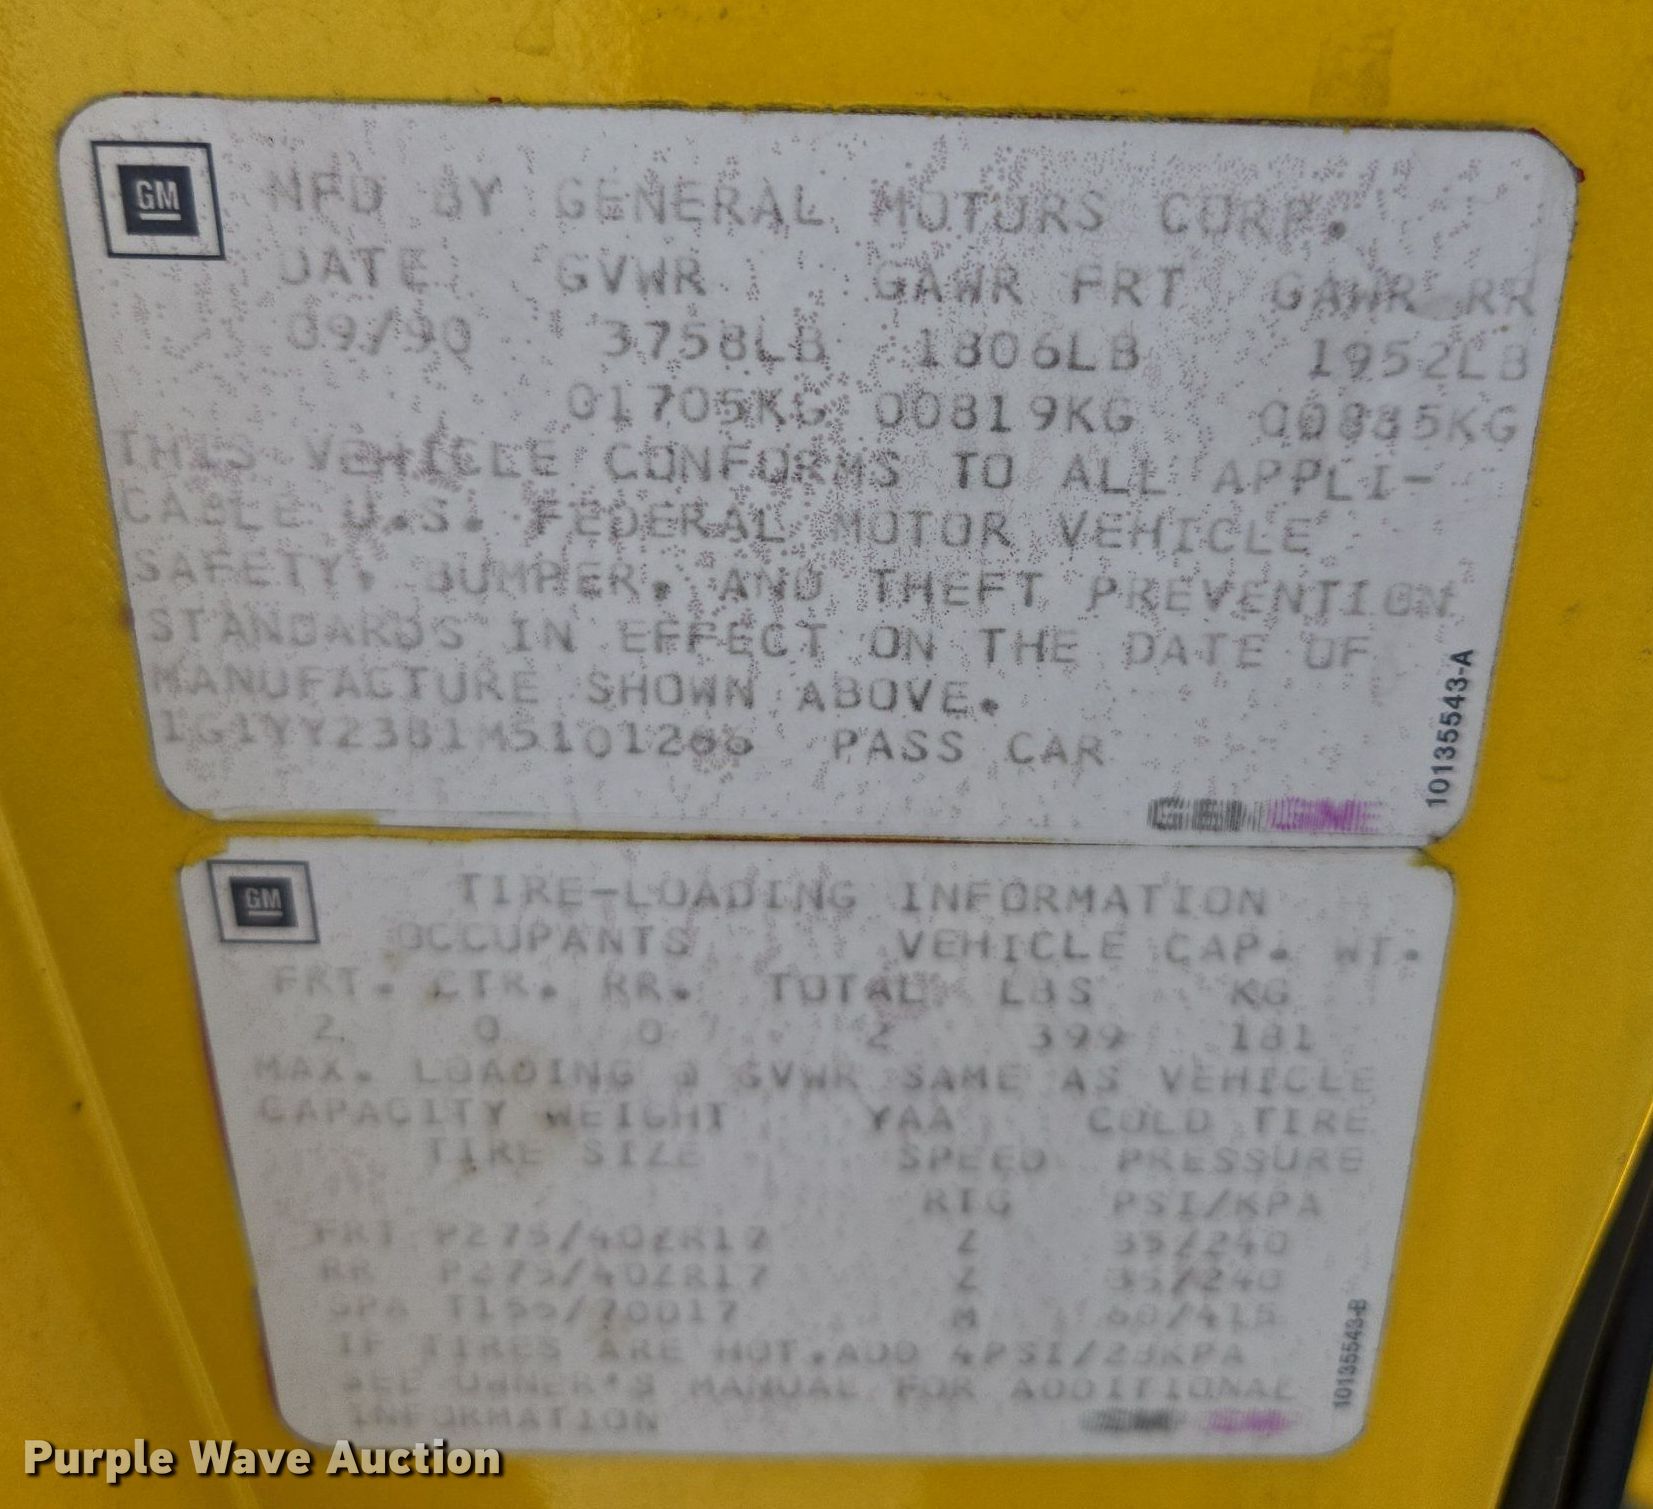 GM
MFD BY GENERAL MOTORS CORP.
DATE GVWR GAWR FRT GAWR RR
09/90 3758LB 1806LB 1952LB
01705KG 00819KG 00885KG
THIS VEHICLE CONFORMS TO ALL APPLI-
CABLE U.S. FEDERAL MOTOR VEHICLE
SAFETY, BUMPER, AND THEFT PREVENTION
STANDARDS IN EFFECT ON THE DATE OF
MANUFACTURE SHOWN ABOVE.
PASS CAR
10135543-A
GM
TIRE-LOADING INFORMATION
OCCUPANTS VEHICLE CAP. WT.
FRT. CTR. RR. TOTAL LBS KG
2 0 0 2 399 181
MAX. LOADING @ GVWR SAME AS VEHICLE
CAPACITY WEIGHT YAA COLD TIRE
TIRE SIZE SPEED PRESSURE
RTG PSI/KPA
FRT P275/40ZR17 Z 35/240
RR P275/40ZR17 Z 35/240
SPA T155/70D17 M 60/415
IF TIRES ARE HOT, ADD 4PSI/28KPA
SEE OWNER'S MANUAL FOR ADDITIONAL
INFORMATION
10135543-B
Purple Wave Auction